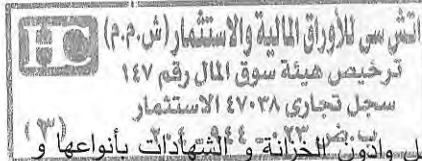 اتش سى للأوراق المالية والاستثمار (ش.م.م)
HC
ترخيص هيئة سوق المال رقم ١٤٧
سجل تجارى ٤٧٠٣٨ الاستثمار
(٣)
وأذون الخزانة و الشهادات بأنواعها و